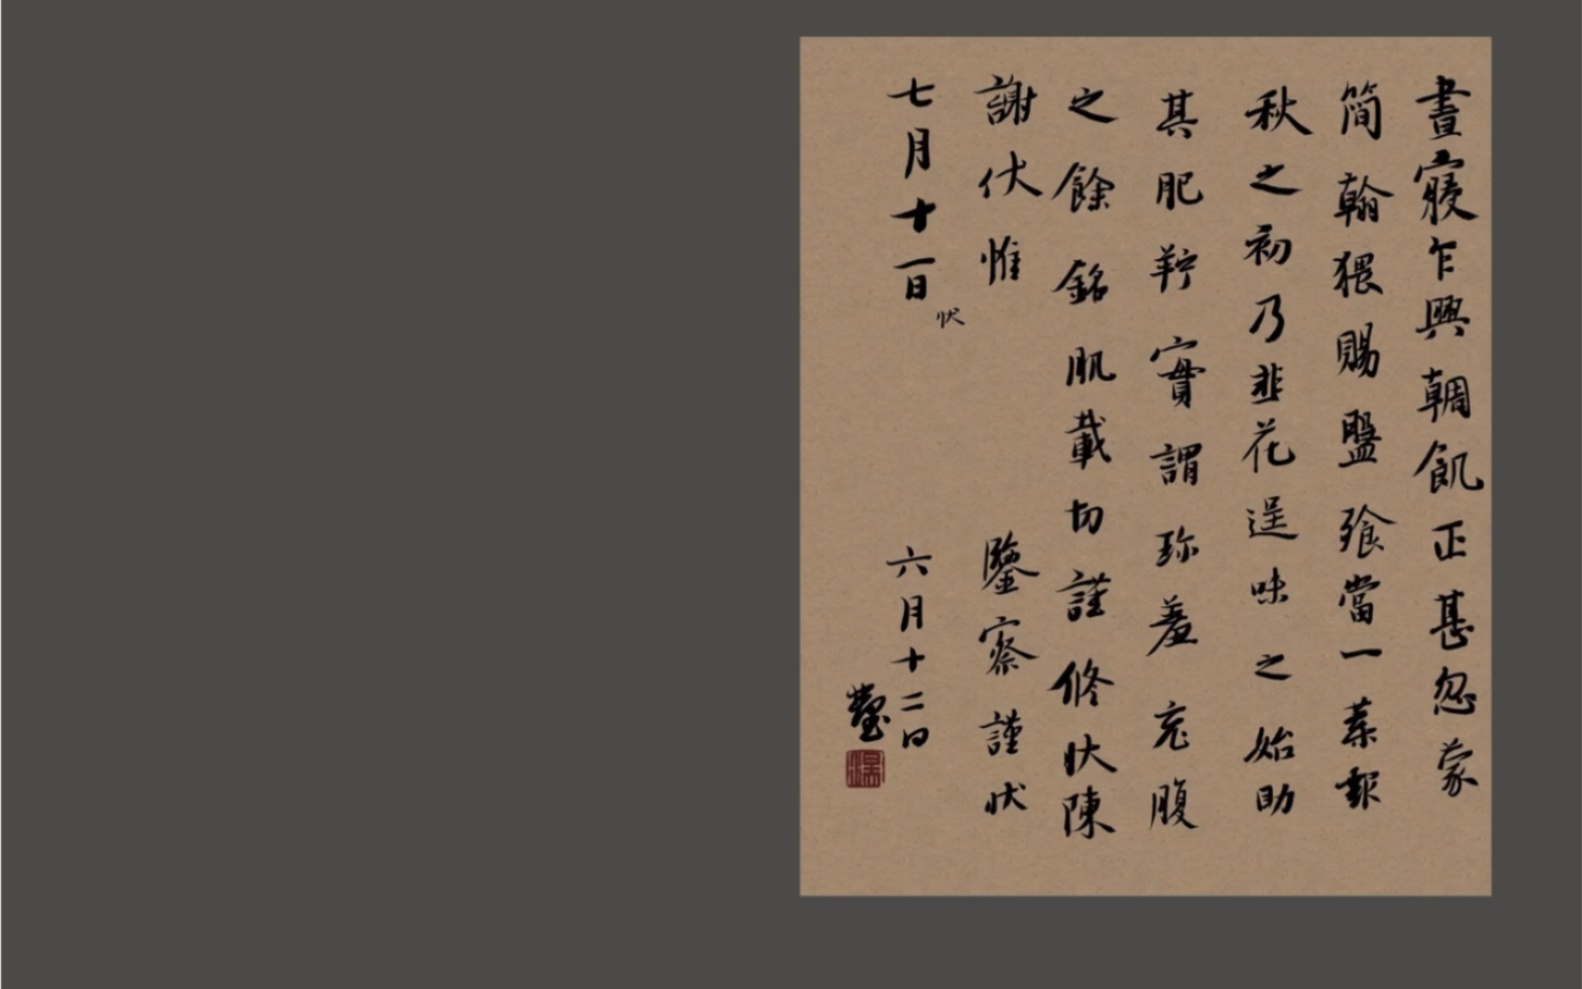 晝寢乍興輖飢正甚忽蒙
簡翰猥賜盤飱當一葉報
秋之初乃韭花逞味之始助
其肥羜實謂珍羞充腹
之餘銘肌載切謹修狀陳
謝伏惟
鑒察謹狀
七月十一日
狀
六月十二日